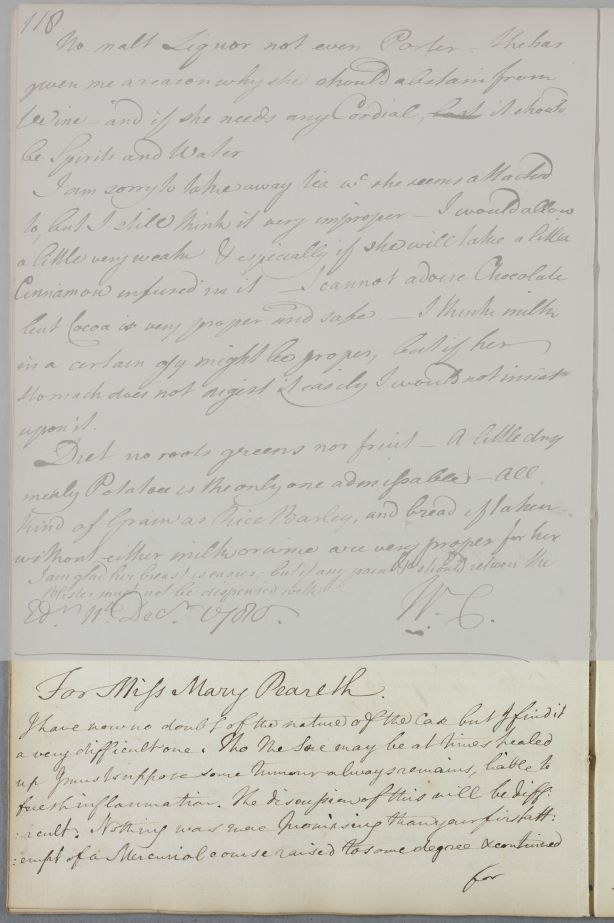 118
No malt Liquor not even Porter - She has
given me a reason why she should abstain from
Wine - and if she needs any Cordial, it should
be Spirits and Water
I am sorry to take away tea wc she seems attached
to, but I still think it very improper - I would allow
a little very weak & especially if she will take a little
Cinnamon infused in it - I cannot advise Chocolate
but Cocoa is very proper and safe. - I think milk
in a certain qy might be proper, but if her
stomach does not digest it easily I would not insist
upon it.
Diet no roots greens nor fruit - A little dry
mealy Potatoe is the only one admissable - all
kind of Grain as Rice Barley, and bread if taken
without either milk or wine are very proper for her
I am glad her breast is easier; but if any pain should return the
Blister must not be dispensed with
Edr. 11th Decr. 1780. W. C.
For Miss Mary Peareth.
I have now no doubt of the nature of the Case but I find it
a very difficult one. Tho the Sore may be at times healed
up I must suppose some tumour always remains, liable to
fresh inflammation. The discussion of this will be diff:
:icult. Nothing was more promising than your first att:
:empt of a Mercurial course raised to some degree & continued
for